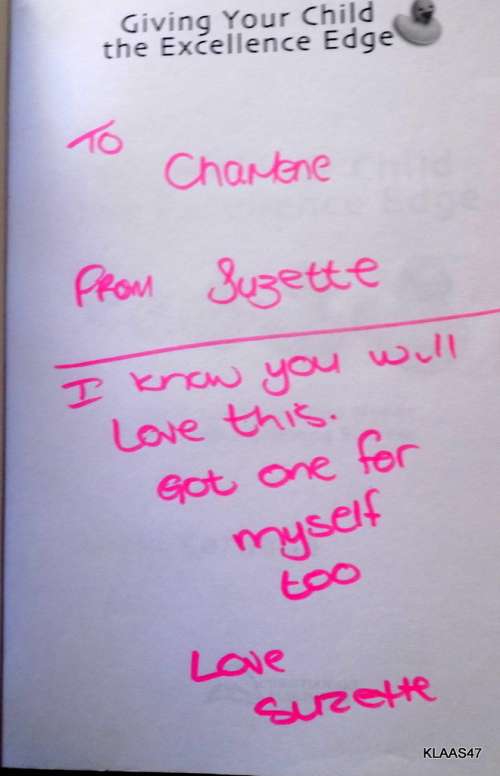 Giving Your Child
the Excellence Edge
TO
Charlene
From Suzette
I know you will
Love this.
Got one for
myself
too
Love
Suzette
KLAAS47